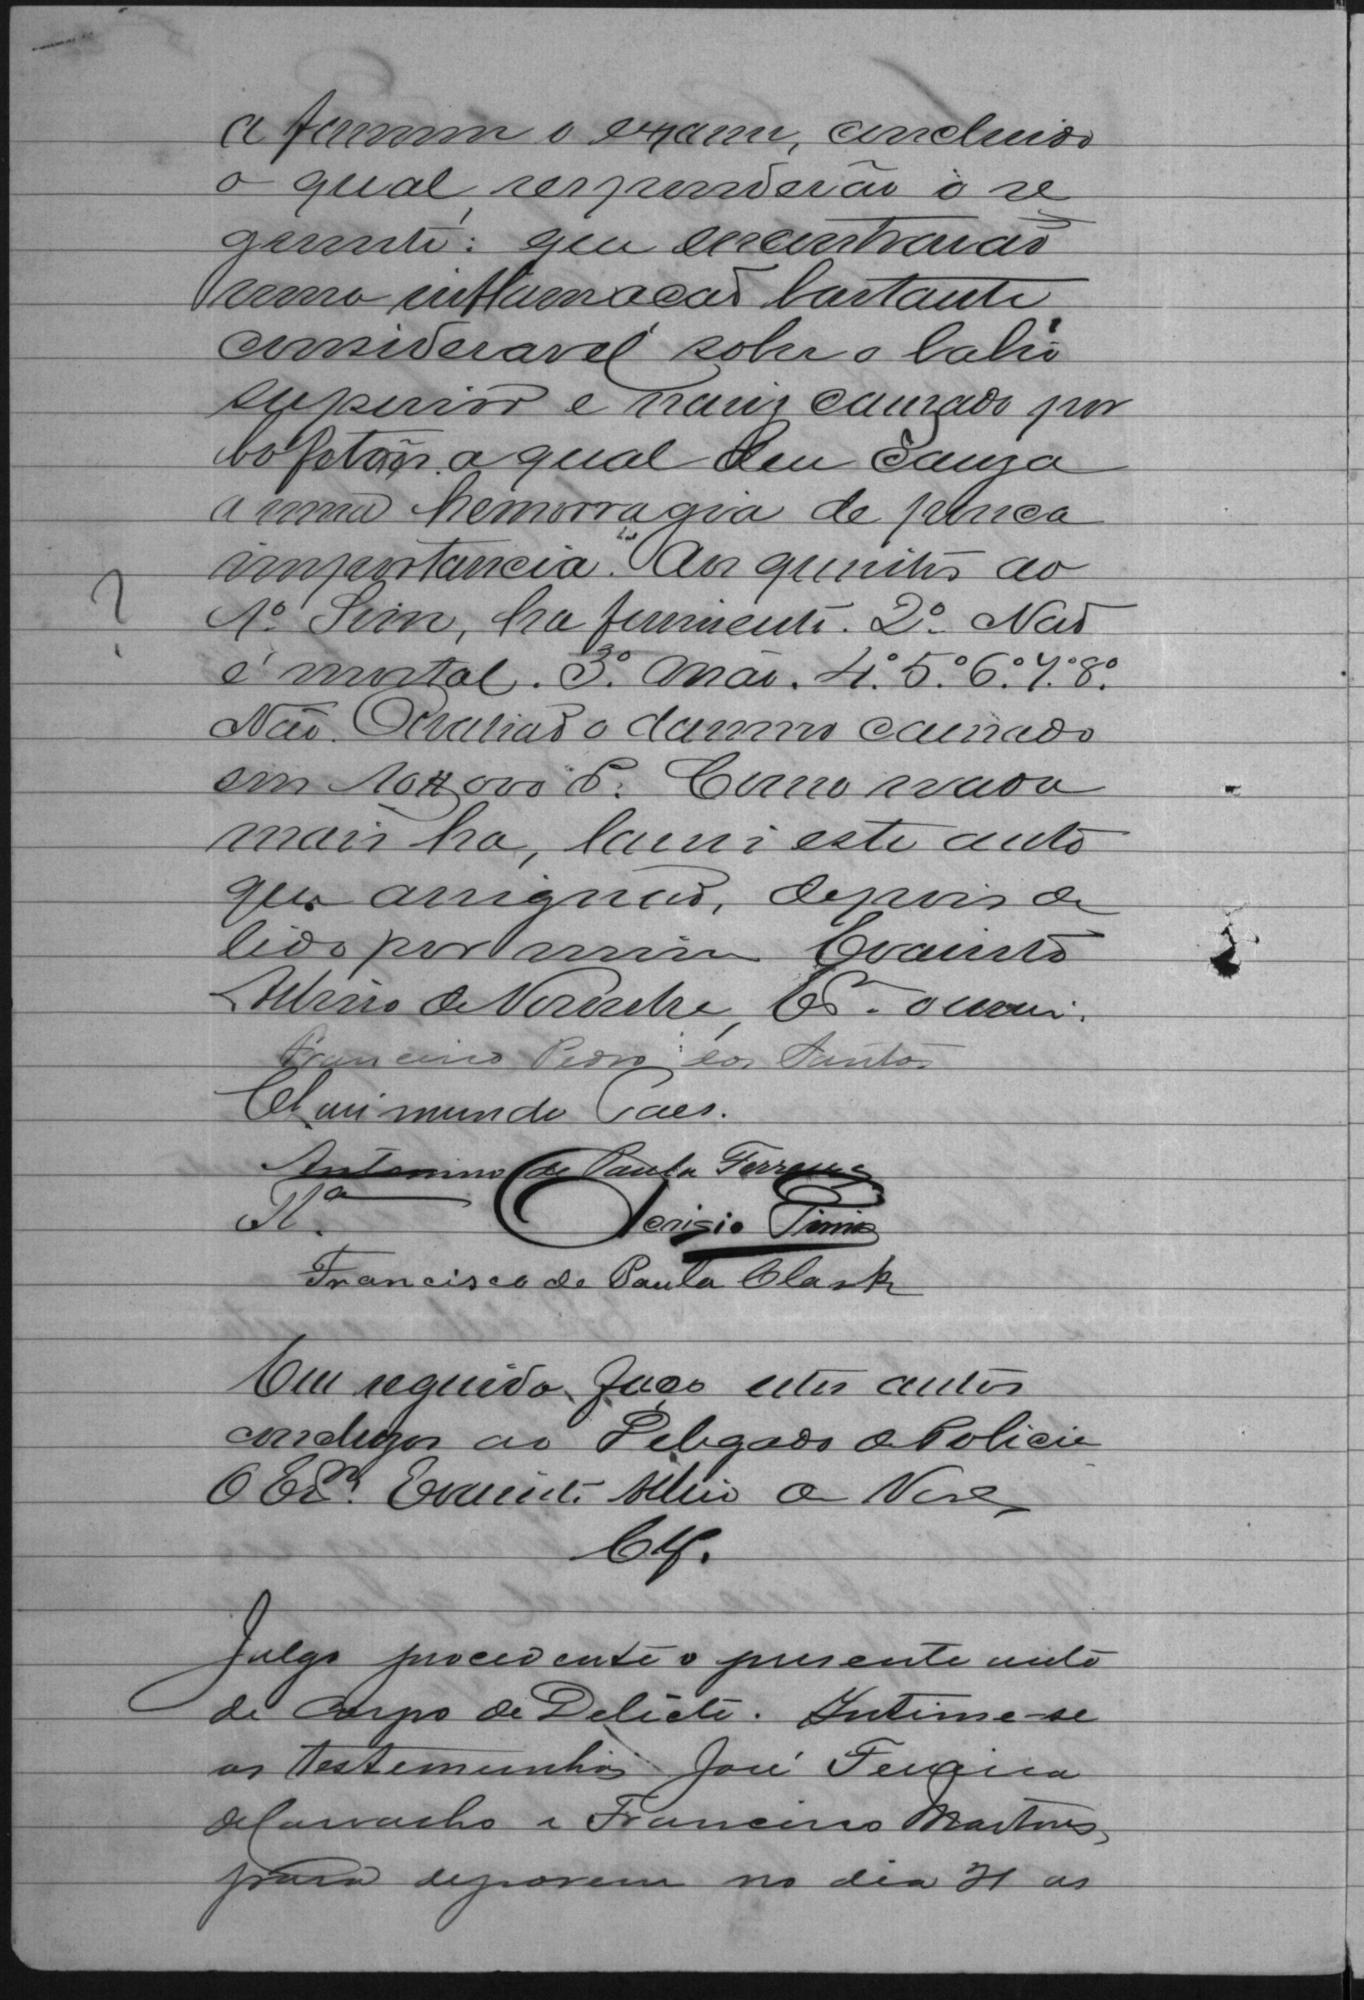 a fazerem o exame, concluido
o qual, responderão o se
guinte: que encontrarão
uma inflamacão bastante
consideravel sobre o labio
superior e nariz causado por
bofetões. a qual deu Causa
a uma hemorragia de pouca
importancia. Aos quesitos ao
? 1º Sim, ha ferimento. 2º Não
é mortal. 3º Não. 4º 5º 6º 7º 8º
Não. Avalião o damno causado
em 10$000. Como nada
mais ha, lavrei este auto
que assignão, depois de
lido por mim Evaristo
de Noronha, Esm. o escrevi.
Francisco Pedro dos Santos
Clarimundo Paes.
Antonino de Paula Ferreira
Denisio Pinio
Francisco de Paula Clark
Em seguida, faço estes autos
conclusos ao Delegado de Policia
O Esm. Evaristo de Nora
Clz.
Julgo procedente o presente auto
de Corpo de Delicto. Intime-se
as testemunhas José Ferreira
de Carvalho e Francisco Martins,
para deporem no dia 21 as